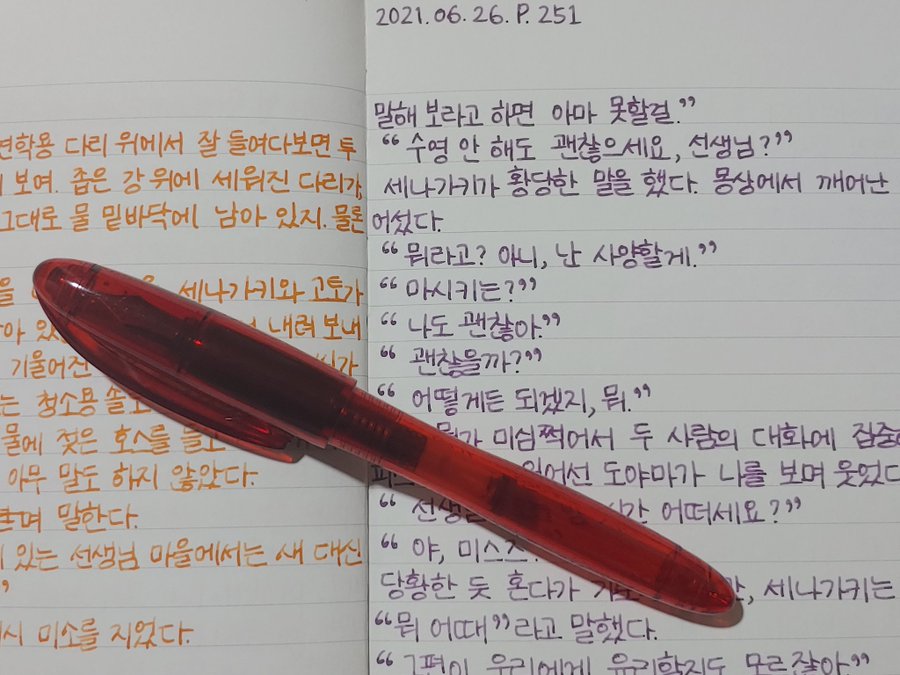 연학용 다리 위에서 잘 들여다보면 투
보여. 좁은 강 위에 세워진 다리가,
그대로 물 밑바닥에 남아 있지. 물론
을 세나가키와 고토가
내려 보내
기울어진
는 청소용
물에 젖은 호스를 들고
아무 말도 하지 않았다.
며 말한다.
있는 선생님 마을에서는 새 대신
”
미소를 지었다.
2021.06.26. P. 251
말해 보라고 하면 아마 못할걸.”
“수영 안 해도 괜찮으세요, 선생님?”
세나가키가 황당한 말을 했다. 몽상에서 깨어난
어섰다.
“뭐라고? 아니, 난 사양할게.”
“마시키는?”
“나도 괜찮아.”
“괜찮을까?”
“어떻게든 되겠지, 뭐.”
미심쩍어서 두 사람의 대화에 집중
도야마가 나를 보며 웃었다
“선생님 어떠세요?”
“야, 미스즈
당황한 듯 혼다가 세나가키는
“뭐 어때”라고 말했다.
“그편이 우리에게 유리할지도 모르잖아.”